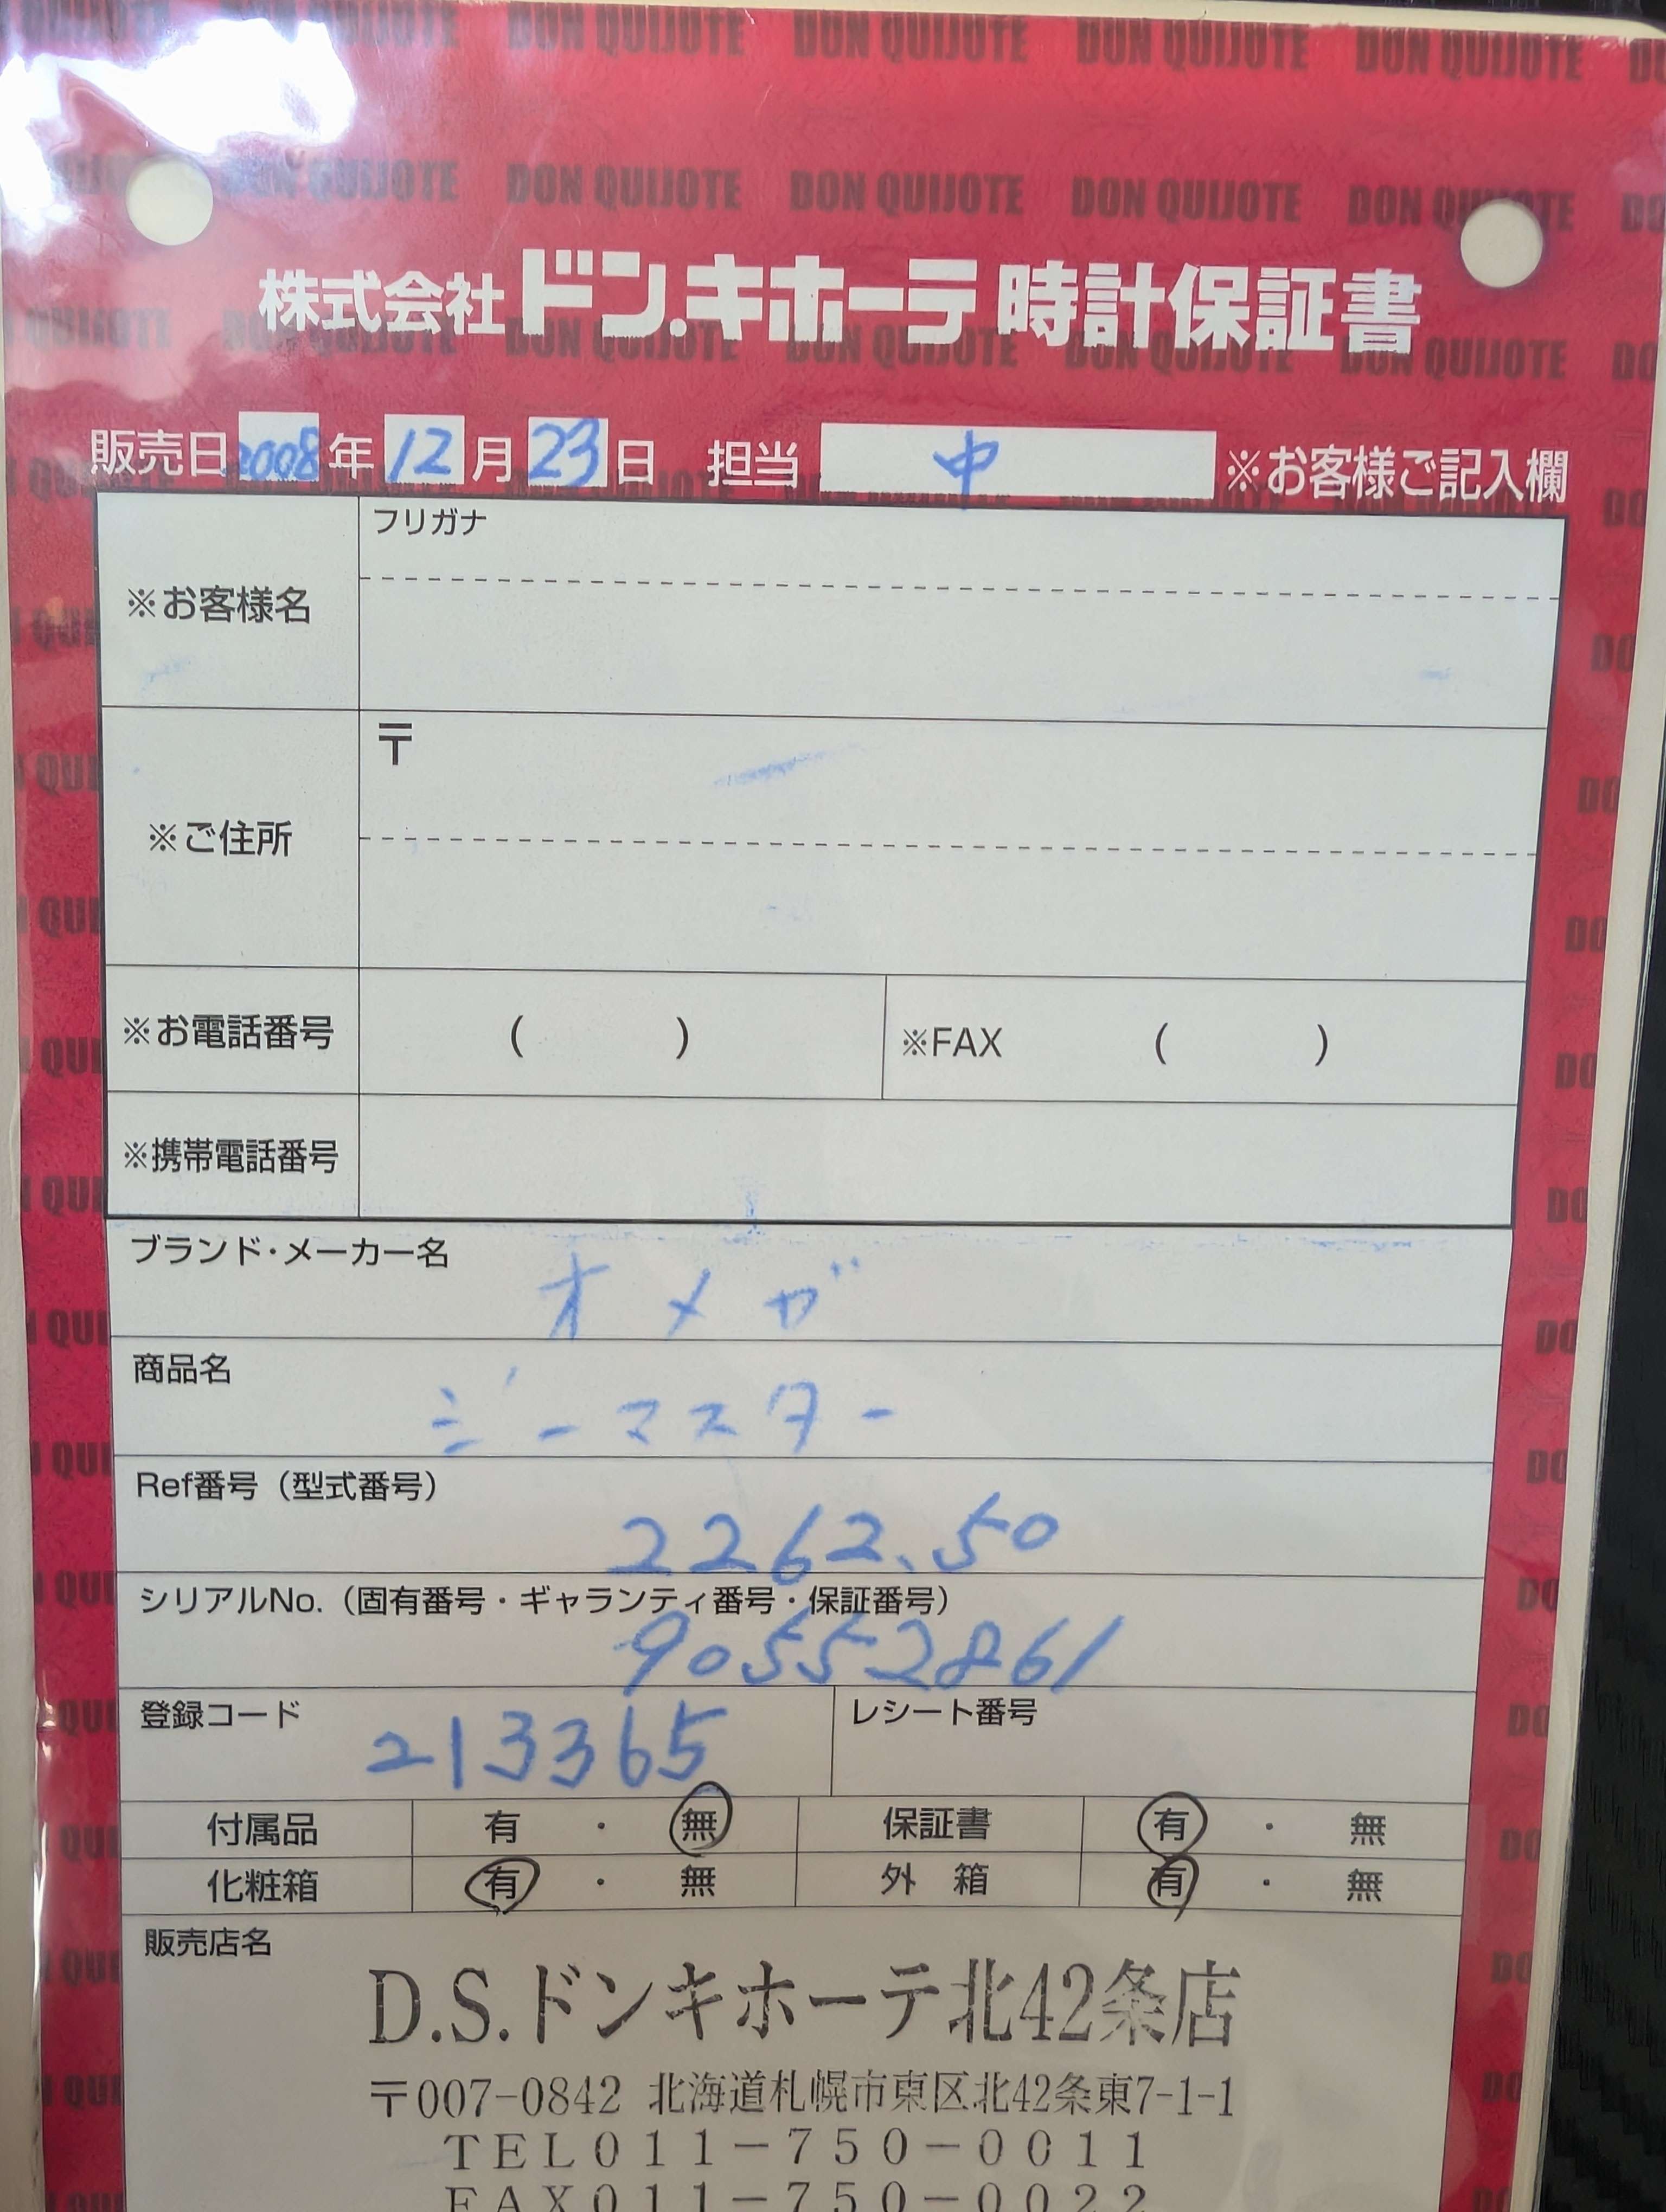 DON QUIJOTE DON QUIJOTE DON QUIJOTE DON QUIJOTE
DON QUIJOTE DON QUIJOTE DON QUIJOTE DON QUIJOTE
株式会社ドン.キホーテ 時計保証書
販売日 2008 年 12 月 23 日 担当 中 ※お客様ご記入欄
※お客様名 フリガナ
※ご住所 〒
※お電話番号 ( ) ※FAX ( )
※携帯電話番号
ブランド・メーカー名 オメガ
商品名 シーマスター
Ref番号(型式番号) 2262.50
シリアルNo.(固有番号・ギャランティ番号・保証番号)
90552861
登録コード 213365 レシート番号
付属品 有 ・ 無 保証書 有 ・ 無
化粧箱 有 ・ 無 外 箱 有 ・ 無
販売店名
D.S.ドンキホーテ北42条店
〒007-0842 北海道札幌市東区北42条東7-1-1
TEL011-750-0011
FAX011-750-0022